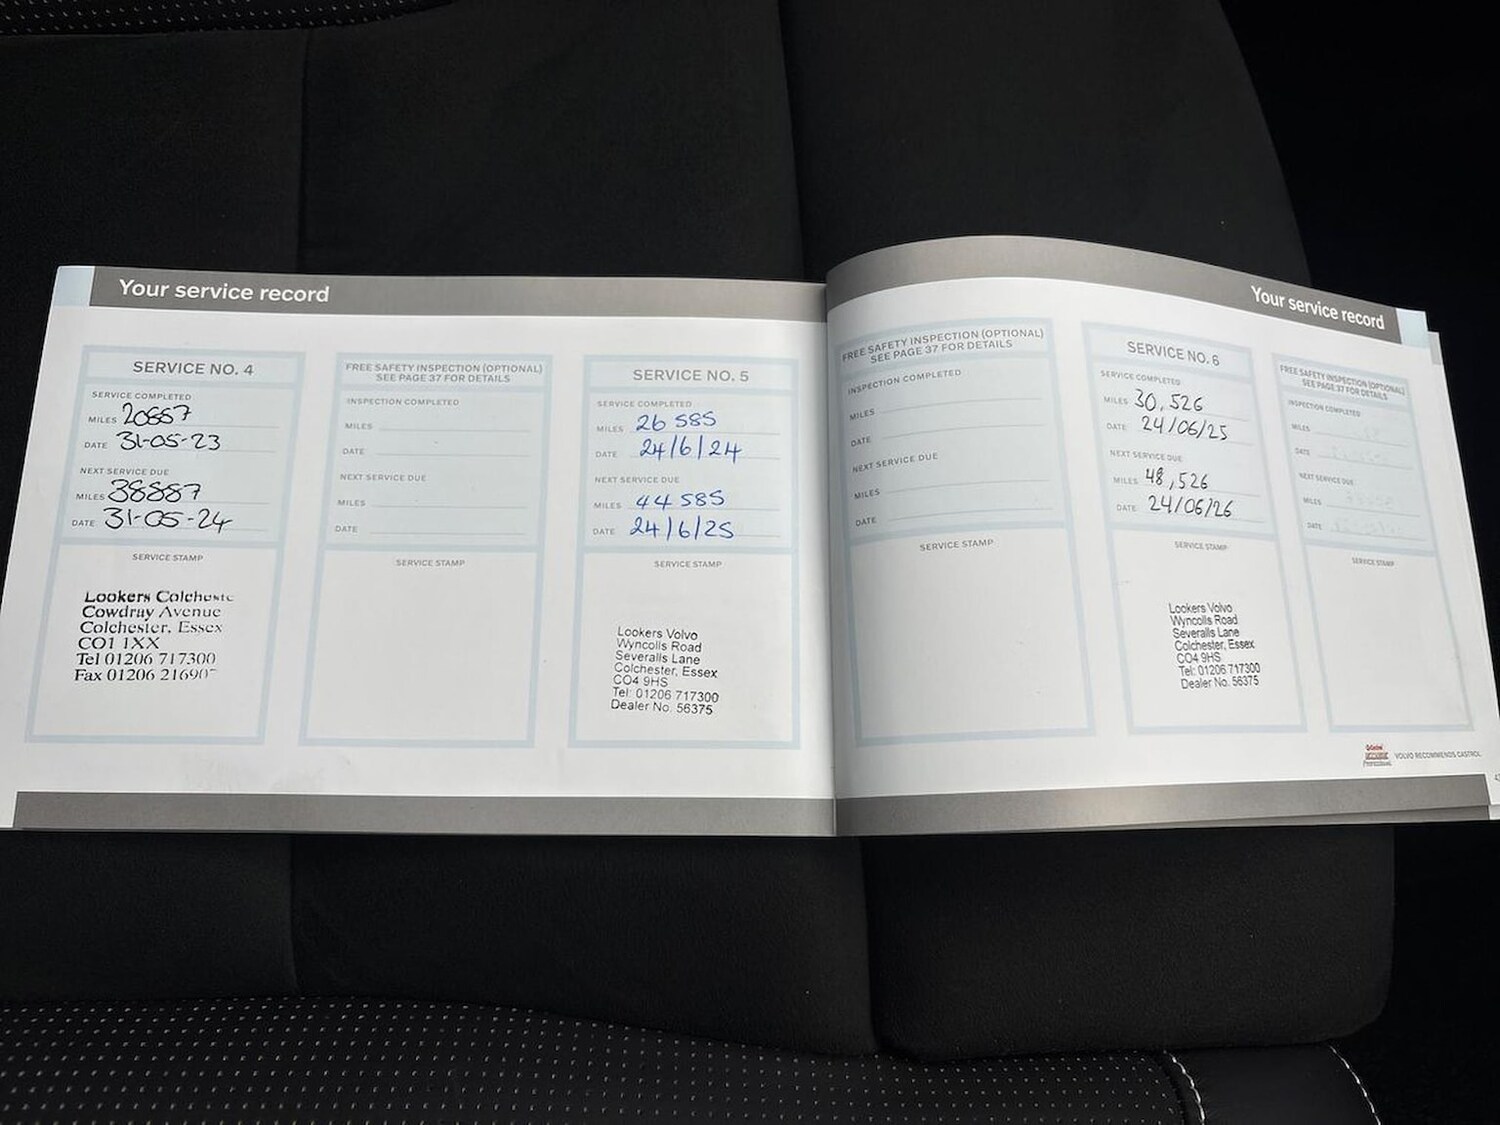 Your service record
SERVICE NO. 4
SERVICE COMPLETED
MILES 20887
DATE 31-05-23
NEXT SERVICE DUE
MILES 38887
DATE 31-05-24
SERVICE STAMP
Lookers Colcheste
Cowdray Avenue
Colchester, Essex
CO1 1XX
Tel 01206 717300
Fax 01206 21690
FREE SAFETY INSPECTION (OPTIONAL)
SEE PAGE 37 FOR DETAILS
INSPECTION COMPLETED
MILES
DATE
NEXT SERVICE DUE
MILES
DATE
SERVICE STAMP
SERVICE NO. 5
SERVICE COMPLETED
MILES 26 585
DATE 24/6/24
NEXT SERVICE DUE
MILES 44 585
DATE 24/6/25
SERVICE STAMP
Lookers Volvo
Wyncolls Road
Severalls Lane
Colchester, Essex
CO4 9HS
Tel: 01206 717300
Dealer No. 56375
Your service record
FREE SAFETY INSPECTION (OPTIONAL)
SEE PAGE 37 FOR DETAILS
INSPECTION COMPLETED
MILES
DATE
NEXT SERVICE DUE
MILES
DATE
SERVICE STAMP
SERVICE NO. 6
SERVICE COMPLETED
MILES 30,526
DATE 24/06/25
NEXT SERVICE DUE
MILES 48,526
DATE 24/06/26
SERVICE STAMP
Lookers Volvo
Wyncolls Road
Severalls Lane
Colchester, Essex
CO4 9HS
Tel: 01206 717300
Dealer No. 56375
FREE SAFETY INSPECTION (OPTIONAL)
SEE PAGE 37 FOR DETAILS
INSPECTION COMPLETED
MILES
DATE
NEXT SERVICE DUE
MILES
DATE
SERVICE STAMP
Castrol
Professional
VOLVO RECOMMENDS CASTROL